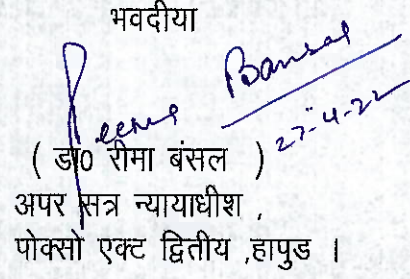 भवदीया
Reema Bansal
27-4-22
( डा0 रीमा बंसल )
अपर सत्र न्यायाधीश ,
पोक्सो एक्ट द्वितीय ,हापुड ।